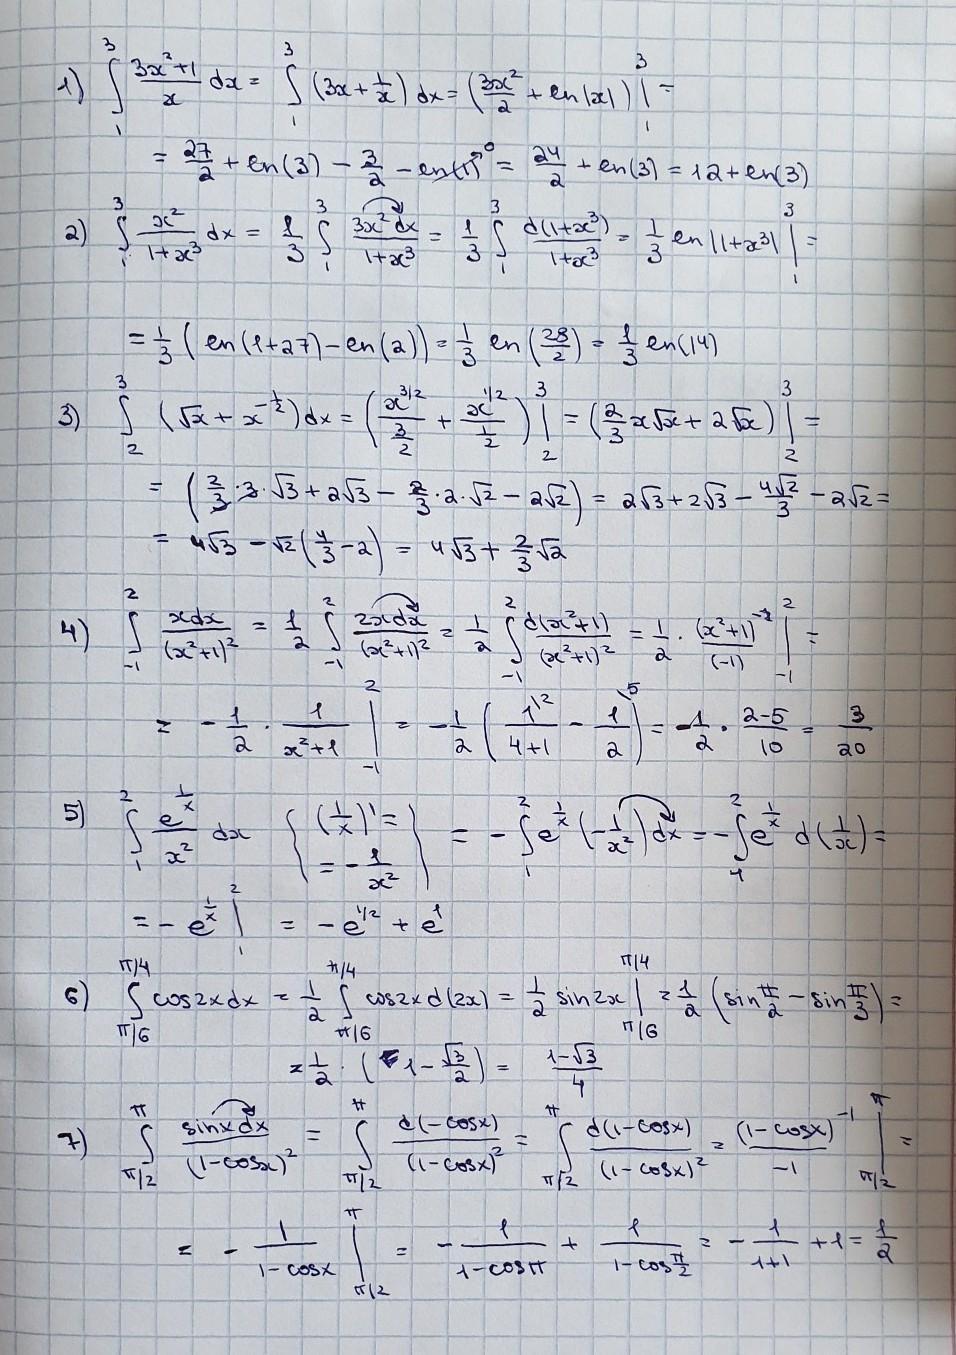 1) ∫₁³ (3x²+1)/x dx = ∫₁³ (3x + 1/x) dx = (3x²/2 + ln|x|) |₁³ =
= 27/2 + ln(3) − 3/2 − ln(1)⁰ = 24/2 + ln(3) = 12 + ln(3)
2) ∫₁³ x²/(1+x³) dx = 1/3 ∫₁³ 3x² dx/(1+x³) = 1/3 ∫₁³ d(1+x³)/(1+x³) = 1/3 ln|1+x³| |₁³ =
= 1/3 (ln(1+27) − ln(2)) = 1/3 ln(28/2) = 1/3 ln(14)
3) ∫₂³ (√x + x^(-1/2)) dx = (x^(3/2)/(3/2) + x^(1/2)/(1/2)) |₂³ = (2/3 x√x + 2√x) |₂³ =
= (2/3 · 3 · √3 + 2√3 − 2/3 · 2 · √2 − 2√2) = 2√3 + 2√3 − 4√2/3 − 2√2 =
= 4√3 − √2 (4/3 − 2) = 4√3 + 2/3 √2
4) ∫₋₁² xdx/(x²+1)² = 1/2 ∫₋₁² 2xdx/(x²+1)² = 1/2 ∫₋₁² d(x²+1)/(x²+1)² = 1/2 · (x²+1)⁻¹/(-1) |₋₁² =
= − 1/2 · 1/(x²+1) |₋₁² = − 1/2 (1\²/(4+1) − 1\⁵/2) = − 1/2 · (2−5)/10 = 3/20
5) ∫₁² e^(1/x)/x² dx { (1/x)' = = − 1/x² } = − ∫₁² e^(1/x) (− 1/x²) dx = − ∫₁² e^(1/x) d(1/x) =
= − e^(1/x) |₁² = − e^(1/2) + e¹
6) ∫_(π/6)^(π/4) cos2x dx = 1/2 ∫_(π/6)^(π/4) cos2x d(2x) = 1/2 sin2x |_(π/6)^(π/4) = 1/2 (sin π/2 − sin π/3) =
= 1/2 · (1 − √3/2) = (1−√3)/4
7) ∫_(π/2)^π sinxdx/(1−cosx)² = ∫_(π/2)^π d(−cosx)/(1−cosx)² = ∫_(π/2)^π d(1−cosx)/(1−cosx)² = (1−cosx)⁻¹/−1 |_(π/2)^π =
= − 1/(1−cosx) |_(π/2)^π = − 1/(1−cosπ) + 1/(1−cos π/2) = − 1/(1+1) + 1 = 1/2